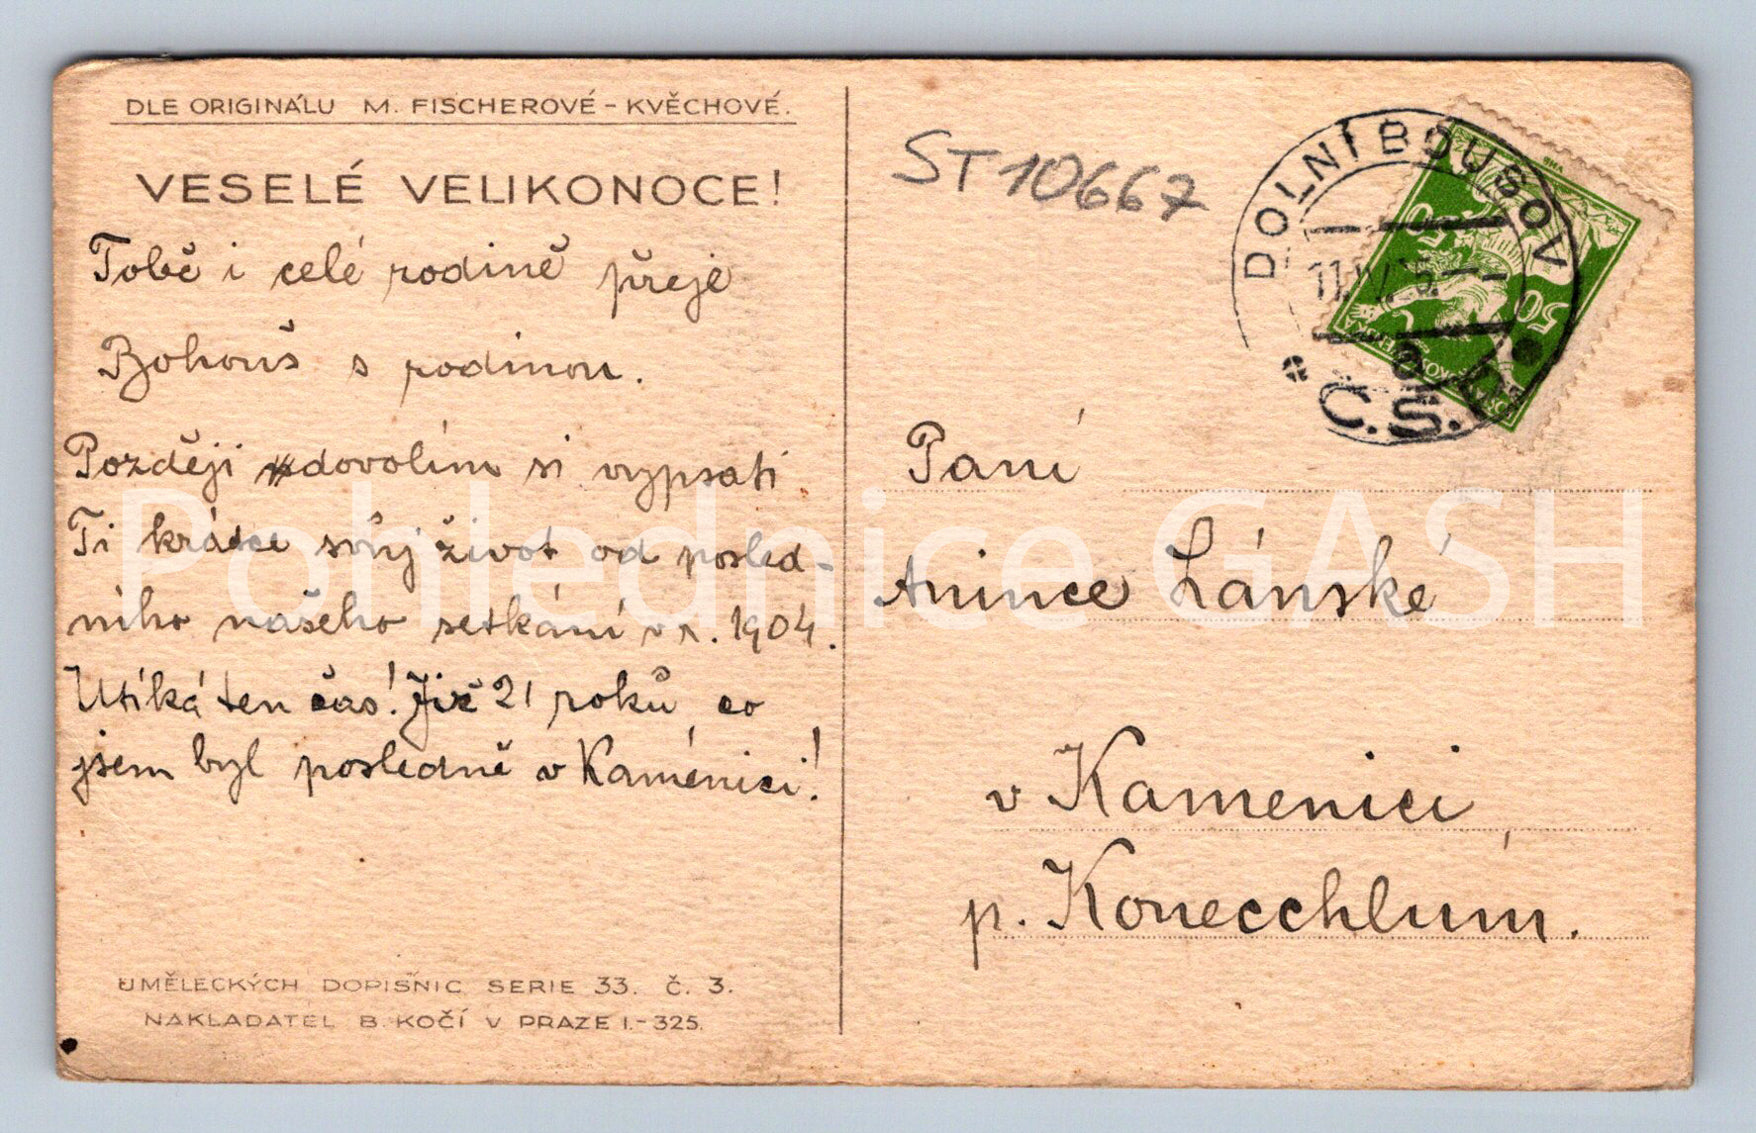 DLE ORIGINÁLU M. FISCHEROVÉ - KVĚCHOVÉ.
VESELÉ VELIKONOCE!
Tobě i celé rodině přeje
Bohouš s rodinou.
Později dovolím si vypsati
Ti krátce svůj život od posled-
ního našeho setkání v r. 1904.
Utíká ten čas! Již 21 roků, co
jsem byl posledně v Kamenici!
UMĚLECKÝCH DOPISNIC SERIE 33. Č. 3.
NAKLADATEL B. KOČÍ V PRAZE I.-325.
ST10667
DOLNÍ BOUSOV
11.IV.25
Č.S.
50
50
Paní
Anince Lánské
v Kamenici,
p. Konecchlum.
Pohlednice GASH